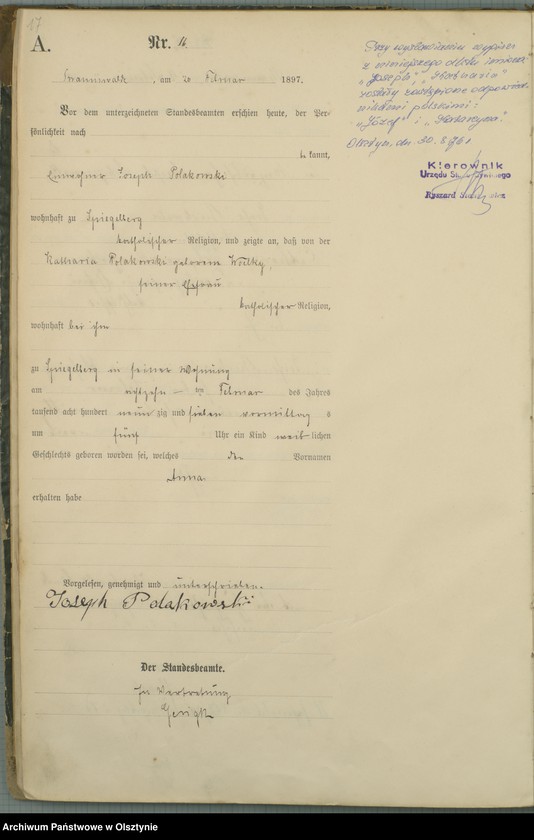 17
A.
Nr. 16
Braunswalde, am 20 Februar 1897.
Vor dem unterzeichneten Standesbeamten erschien heute, der Per-
sönlichkeit nach
kannt,
Einwohner Joseph Polakowski
wohnhaft zu Spiegelberg
katholischer Religion, und zeigte an, daß von der
Katharia Polakowski geborene Woelky,
seiner Ehefrau
katholischer Religion,
wohnhaft bei ihm
zu Spiegelberg in seiner Wohnung
am achtzehn - ten Februar des Jahres
tausend acht hundert neun zig und sieben vormittag s
um fünf Uhr ein Kind weib lichen
Geschlechts geboren worden sei, welches den Vornamen
Anna.
erhalten habe
Vorgelesen, genehmigt und unterschrieben.
Joseph Polakowski
Der Standesbeamte.
In Vertretung
Przy wystawieniu wypisu
z niniejszego aktu imiona:
"Joseph", "Katharia"
zostały zastąpione odpowied-
nikami polskimi:
"Józef" i "Katarzyna."
Olsztyn, dn. 30.
Kierownik
Urzędu
Ryszard
Archiwum Państwowe w Olsztynie